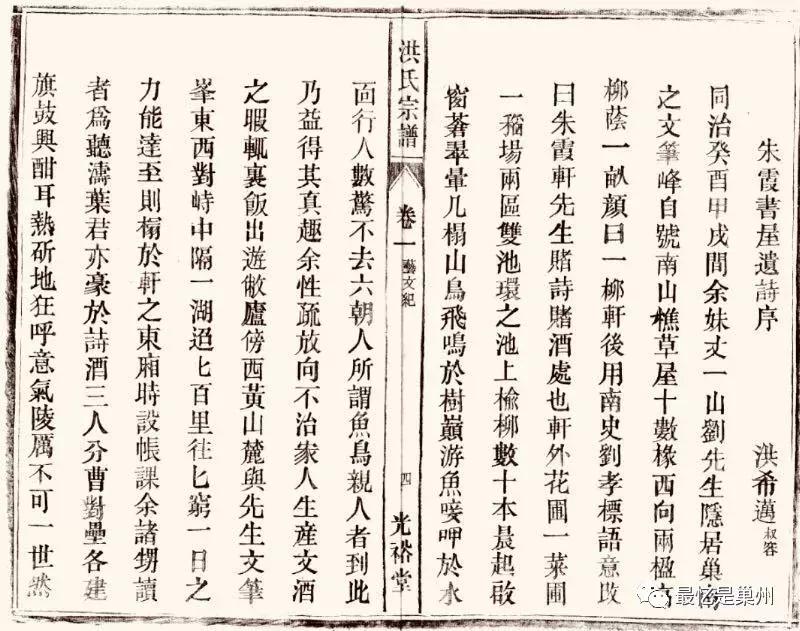 朱霞書屋遺詩序 洪希邁 叔容
同治癸酉甲戌間余妹丈一山劉先生隱居巢
之文筆峰自號南山樵草屋十數椽西向兩楹
柳蔭一畝顏曰一柳軒後用南史劉孝標語意改
曰朱霞軒先生賭詩賭酒處也軒外花圃一菜圃
一稻場兩區雙池環之池上榆柳數十本晨起啟
窗蒼翠暈几榻山鳥飛鳴於樹巔游魚唼呷於水
洪氏宗譜 卷一 藝文紀 四 光裕堂
面行人數驚不去六朝人所謂魚鳥親人者到此
乃益得其真趣余性疏放向不治家人生產文酒
之暇輒裹飯出遊敝廬傍西黃山麓與先生文筆
峯東西對峙中隔一湖迢匕百里往匕窮一日之
力能達至則榻於軒之東廂時設帳課余諸甥讀
者爲聽濤葉君亦豪於詩酒三人分曹對壘各建
旗鼓興酣耳熱斫地狂呼意氣陵厲不可一世然
最忆是巢州